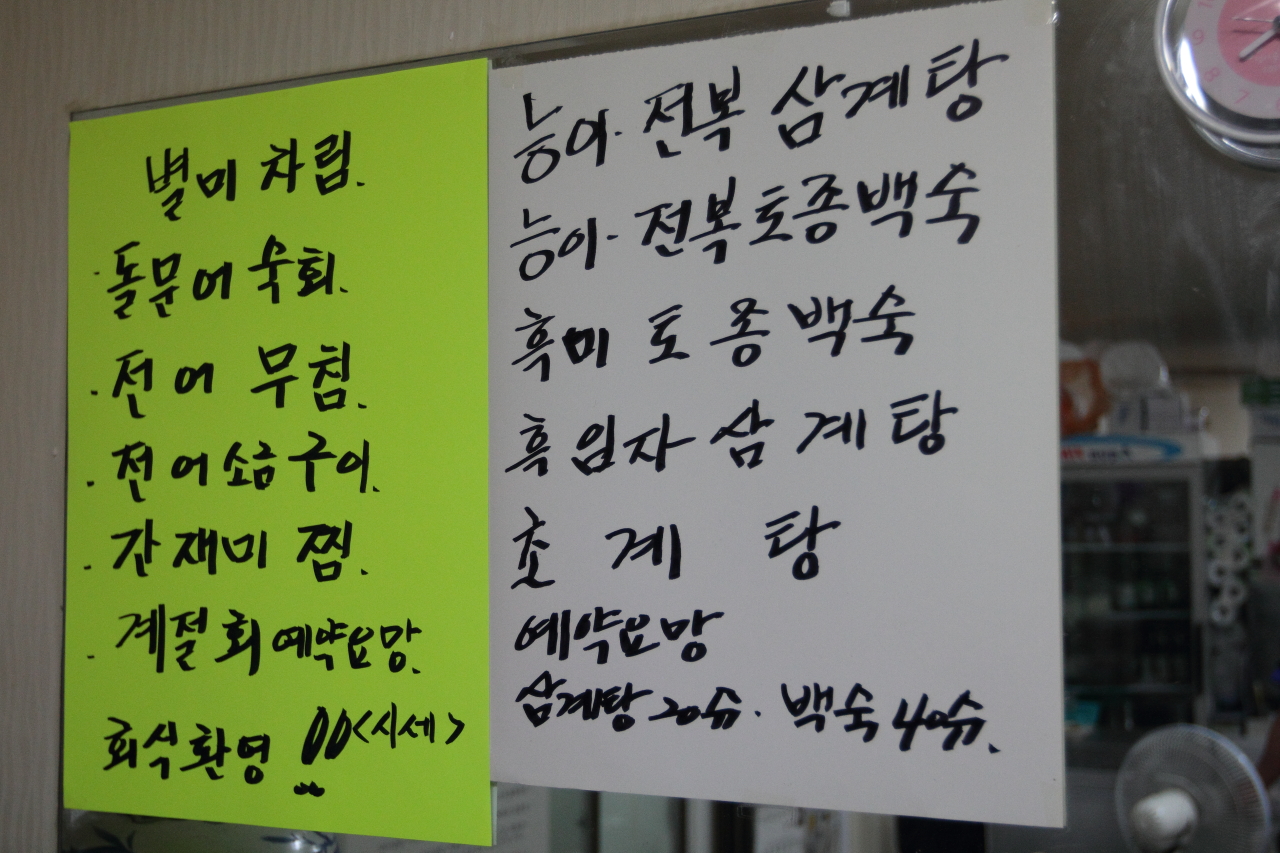 별미 차림.
· 돌문어 숙회.
· 전어 무침.
· 전어 소금구이.
· 간재미 찜.
· 계절회 예약요망.
회식환영 <시세>
능이·전복 삼계탕
능이·전복토종백숙
흑미 토종 백숙
흑임자 삼계탕
초계탕
예약요망
삼계탕 20슈. 백숙 40슈.